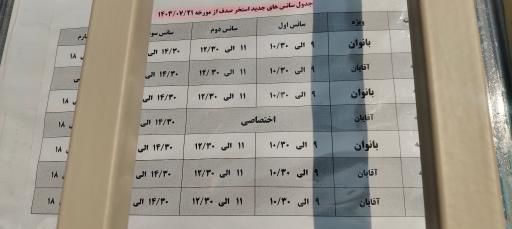 جدول سانس های جدید استخر صدف از مورخه ۱۴۰۳/۰۷/۲۱
ویژه سانس اول سانس دوم سانس سو
بانوان ۹ الی ۱۰/۳۰ ۱۱ الی ۱۲/۳۰ ۱۴/۳۰ الی ۱۸
آقایان ۹ الی ۱۰/۳۰ ۱۱ الی ۱۲/۳۰ ۱۴/۳۰ الی
بانوان ۹ الی ۱۰/۳۰ ۱۱ الی ۱۲/۳۰ ۱۴/۳۰ الی ۱۸
آقایان اختصاصی ۱۴/۳۰ الی ۱۸
بانوان ۹ الی ۱۰/۳۰ ۱۱ الی ۱۲/۳۰ ۱۴/۳۰ الی ۱۸
آقایان ۹ الی ۱۰/۳۰ ۱۱ الی ۱۲/۳۰ ۱۴/۳۰ الی
آقایان ۹ الی ۱۰/۳۰ ۱۱ الی ۱۲/۳۰ ۱۴/۳۰ الی ۱۸